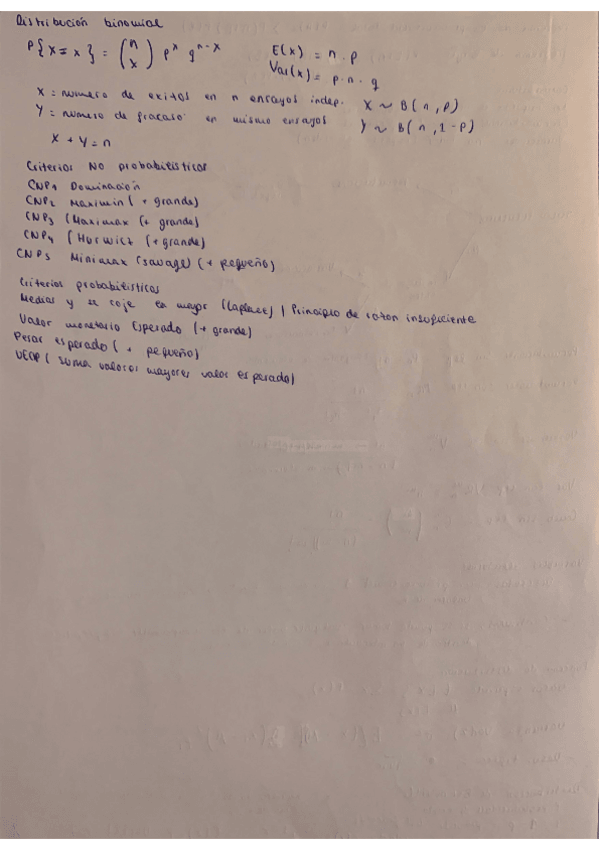 Distribución binomial
P{X=x} = (n x) p^x q^n-x E(x) = n.p
Var(x) = p.n.q
X = numero de exitos en n ensayos indep. X ~ B(n,p)
Y = numero de fracaso en mismo ensayos Y ~ B(n,1-p)
X + Y = n
Criterios No probabilisticos
CNP1 Dominación
CNP2 Maximin (+ grande)
CNP3 (Maximax (+ grande)
CNP4 (Hurwicz (+ grande)
CNP5 Minimax (savage) (+ pequeño)
Criterios probabilisticos
Medias y se coje la mayor (Laplace) | Principio de razon insuficiente
Valor monetario Esperado (+ grande)
Pesar esperado (+ pequeño)
(suma valores mayores valor esperado)